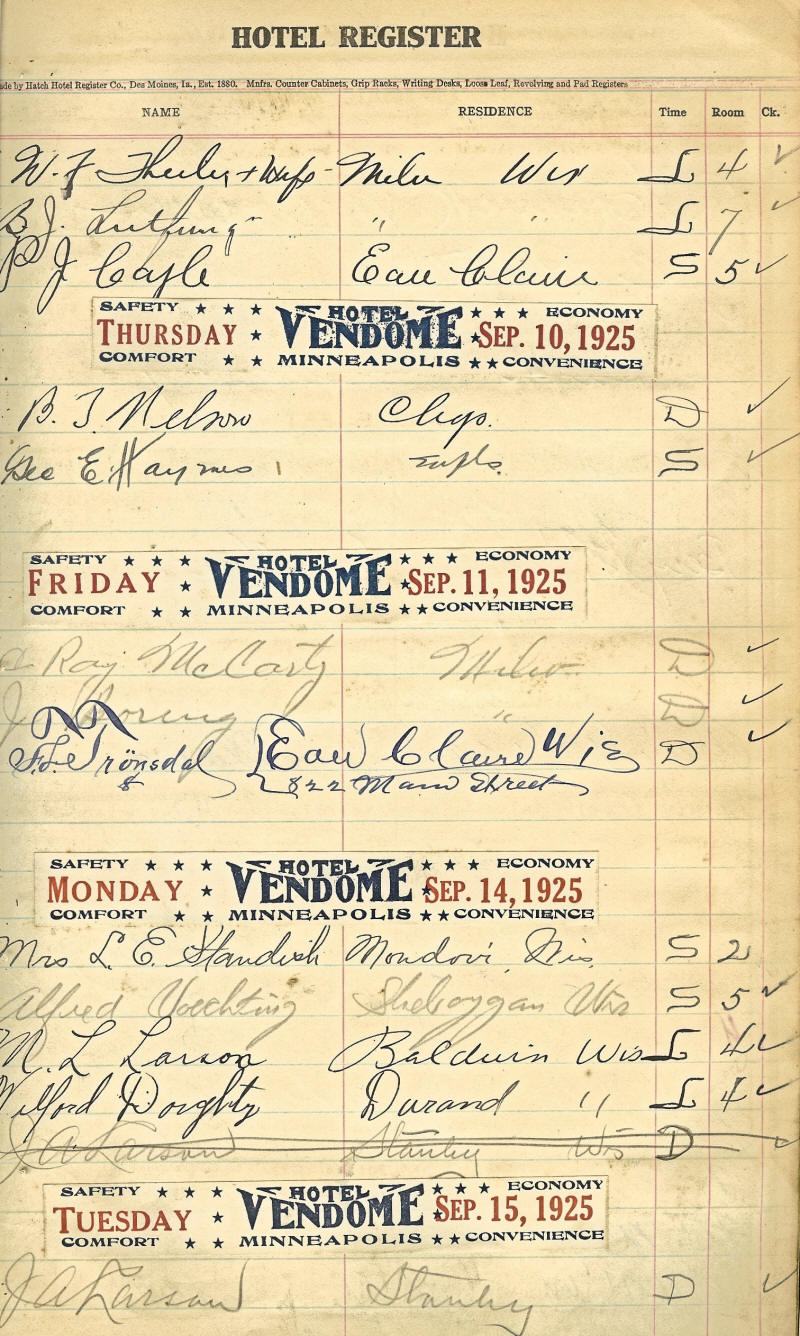 HOTEL REGISTER
de by Hatch Hotel Register Co., Des Moines, Ia., Est. 1880. Mnfrs. Counter Cabinets, Grip Racks, Writing Desks, Loose Leaf, Revolving and Pad Registers
NAME RESIDENCE Time Room Ck.
W. F. + Wife Milw Wis L 4
B J. " " L 7
P J Cagle Eau Claire S 5
SAFETY HOTEL ECONOMY
THURSDAY VENDOME SEP. 10, 1925
COMFORT MINNEAPOLIS CONVENIENCE
B. T. Nelson Chgo. D
Geo E Haynes Mpls. S
SAFETY HOTEL ECONOMY
FRIDAY VENDOME SEP. 11, 1925
COMFORT MINNEAPOLIS CONVENIENCE
Ray McCarty Milw D
J Boreing " D
F. L. Trönsdal Eau Claire Wis D
& 822 Main Street
SAFETY HOTEL ECONOMY
MONDAY VENDOME SEP. 14, 1925
COMFORT MINNEAPOLIS CONVENIENCE
Mrs L. E. Standish Mondovi, Wis. S 2
Alfred Voechting Sheboygan Wis S 5
N. L Larson Baldwin Wis L 4
Wilford Doughty Durand " L 4
J A Larson Stanley Wis D
SAFETY HOTEL ECONOMY
TUESDAY VENDOME SEP. 15, 1925
COMFORT MINNEAPOLIS CONVENIENCE
J A Larson Stanley D